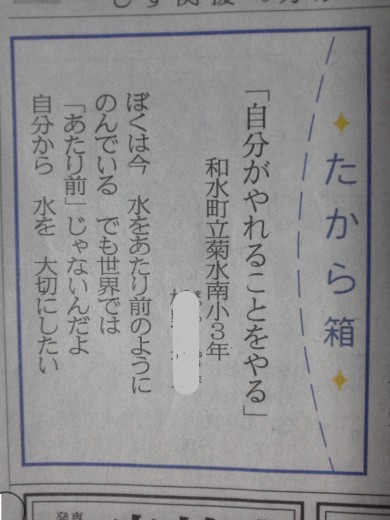 たから箱
「自分がやれることをやる」
和水町立菊水南小３年
ぼくは今　水をあたり前のように
のんでいる　でも世界では
「あたり前」じゃないんだよ
自分から　水を　大切にしたい